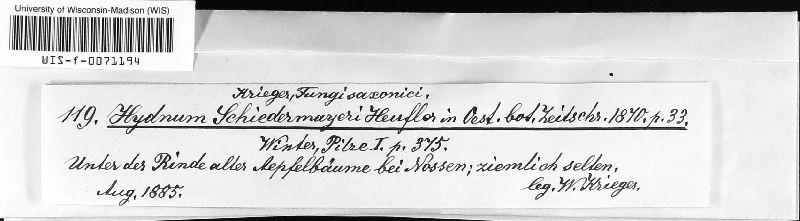 University of Wisconsin-Madison (WIS)
WIS-f-0071194
Krieger, Fungi saxonici.
119. Hydnum Schiedermayeri Heuflor in Oest. bot. Zeitschr. 1870. p. 33.
Winter, Pilze I. p. 375.
Unter der Rinde alter Aepfelbäume bei Nossen; ziemlich selten.
Aug. 1885.
leg. W. Krieger.